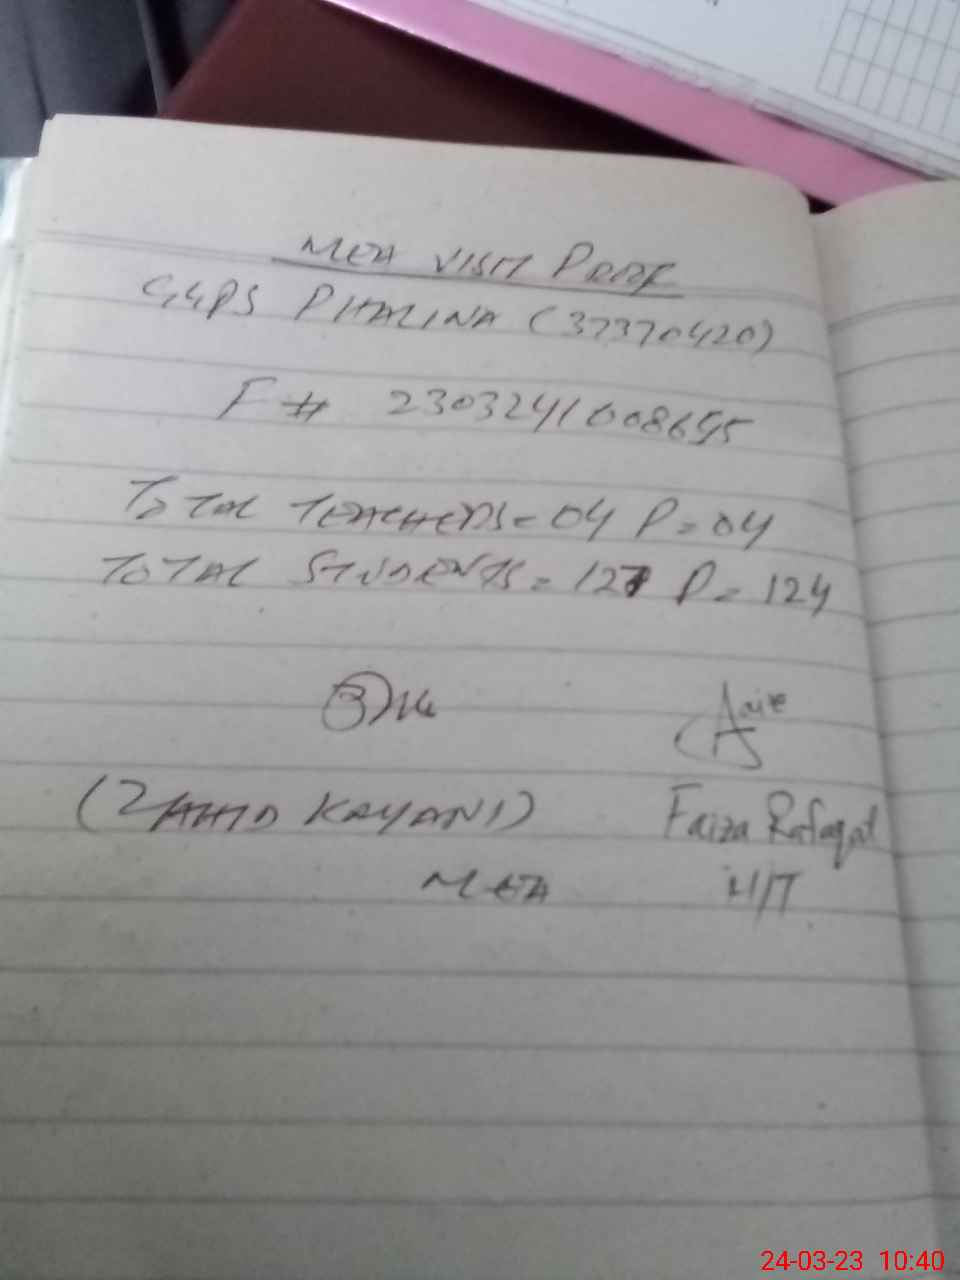 MEA VISIT PROOF
GGPS PHALINA (37370420)
F# 2303241008695
TOTAL TEACHERS = 04 P = 04
TOTAL STUDENTS = 127 P = 124
(ZAHID KAYANI) Faiza Rafaqat
MEA H/T
24-03-23 10:40